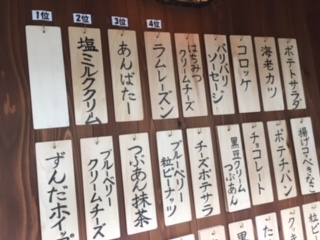 1位
2位
3位
4位
塩ミルククリーム
あんばたー
ラムレーズン
はちみつ
クリームチーズ
パリパリ
ソーセージ
コロッケ
海老カツ
ポテトサラダ
ずんだホイップ
ブルーベリー
クリームチーズ
つぶあん抹茶
ブルーベリー
粒ピーナッツ
チーズポテサラ
黒豆クリーム
つぶあん
チョコレート
ポテチパン